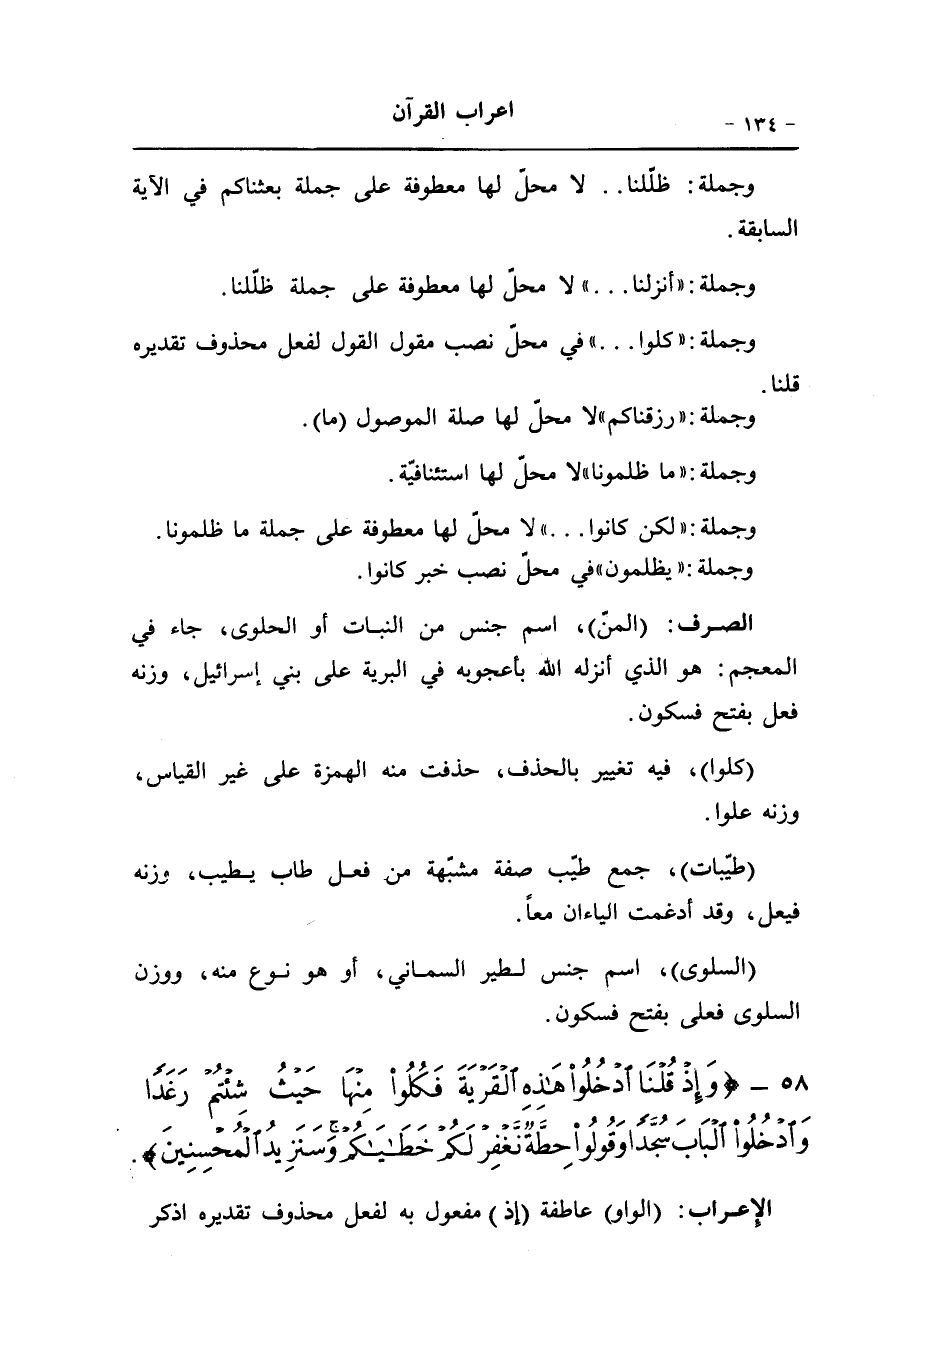 اعراب القرآن
- ١٣٤ -
وجملة: ظلّلنا.. لا محلّ لها معطوفة على جملة بعثناكم في الآية
السابقة.
وجملة:«أنزلنا...» لا محلّ لها معطوفة على جملة ظلّلنا.
وجملة:«كلوا...»في محلّ نصب مقول القول لفعل محذوف تقديره
قلنا.
وجملة:«رزقناكم»لا محلّ لها صلة الموصول (ما).
وجملة:«ما ظلمونا»لا محلّ لها استئنافيّة.
وجملة:«لكن كانوا...»لا محلّ لها معطوفة على جملة ما ظلمونا.
وجملة:«يظلمون»في محلّ نصب خبر كانوا.
الصرف: (المنّ)، اسم جنس من النبات أو الحلوى، جاء في
المعجم: هو الذي أنزله الله بأعجوبه في البرية على بني إسرائيل، وزنه
فعل بفتح فسكون.
(كلوا)، فيه تغيير بالحذف، حذفت منه الهمزة على غير القياس،
وزنه علوا.
(طيّبات)، جمع طيّب صفة مشبّهة من فعل طاب يطيب، وزنه
فيعل، وقد أدغمت الياءان معاً.
(السلوى)، اسم جنس لطير السماني، أو هو نوع منه، ووزن
السلوى فعلى بفتح فسكون.
٥٨ - ﴿وَإِذْ قُلْنَا ٱدْخُلُوا۟ هَٰذِهِ ٱلْقَرْيَةَ فَكُلُوا۟ مِنْهَا حَيْثُ شِئْتُمْ رَغَدًا
وَٱدْخُلُوا۟ ٱلْبَابَ سُجَّدًا وَقُولُوا۟ حِطَّةٌ نَّغْفِرْ لَكُمْ خَطَٰيَٰكُمْ ۚ وَسَنَزِيدُ ٱلْمُحْسِنِينَ﴾.
الإعراب: (الواو) عاطفة (إذ) مفعول به لفعل محذوف تقديره اذكر